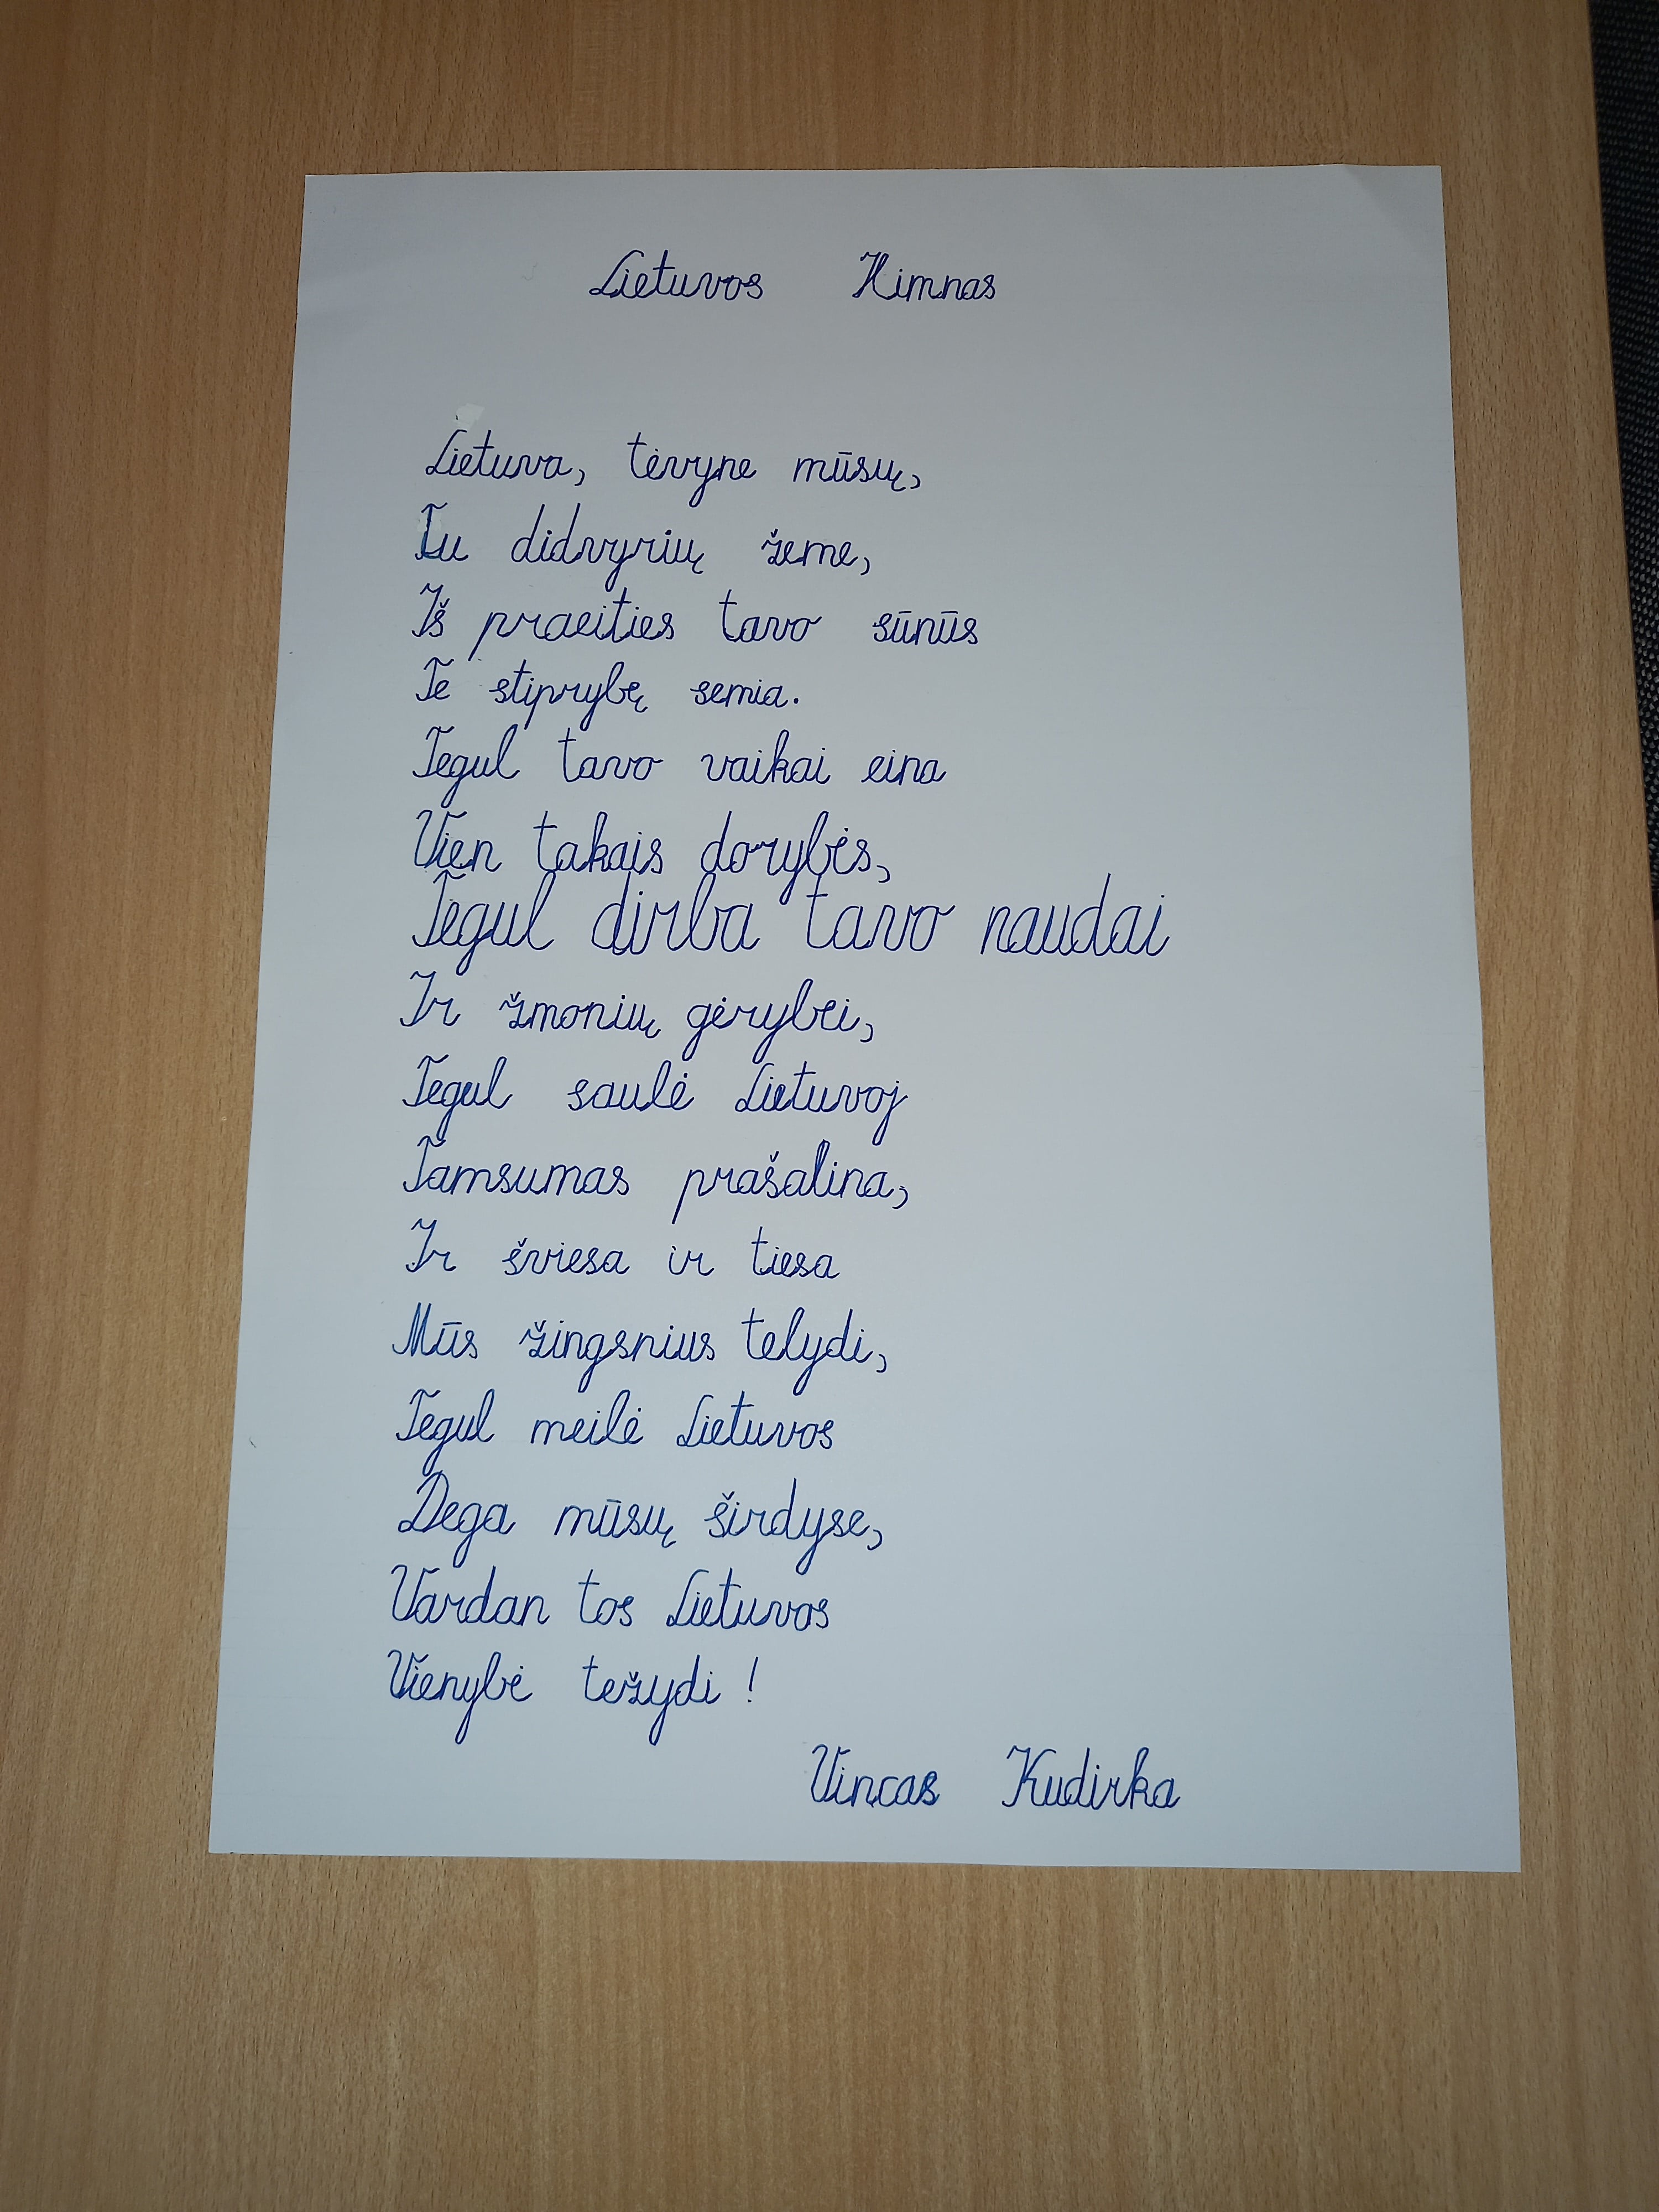 Lietuvos Himnas
Lietuva, tėvyne mūsų,
Tu didvyrių žeme,
Iš praeities tavo sūnūs
Te stiprybę semia.
Tegul tavo vaikai eina
Vien takais dorybės,
Tegul dirba tavo naudai
Ir žmonių gėrybei,
Tegul saulė Lietuvoj
Tamsumas prašalina,
Ir šviesa ir tiesa
Mūs žingsnius telydi,
Tegul meilė Lietuvos
Dega mūsų širdyse,
Vardan tos Lietuvos
Vienybė težydi !
Vincas Kudirka